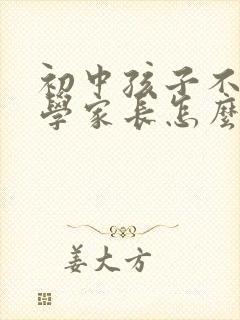 初中孩子不
學家长怎麼
姜大方